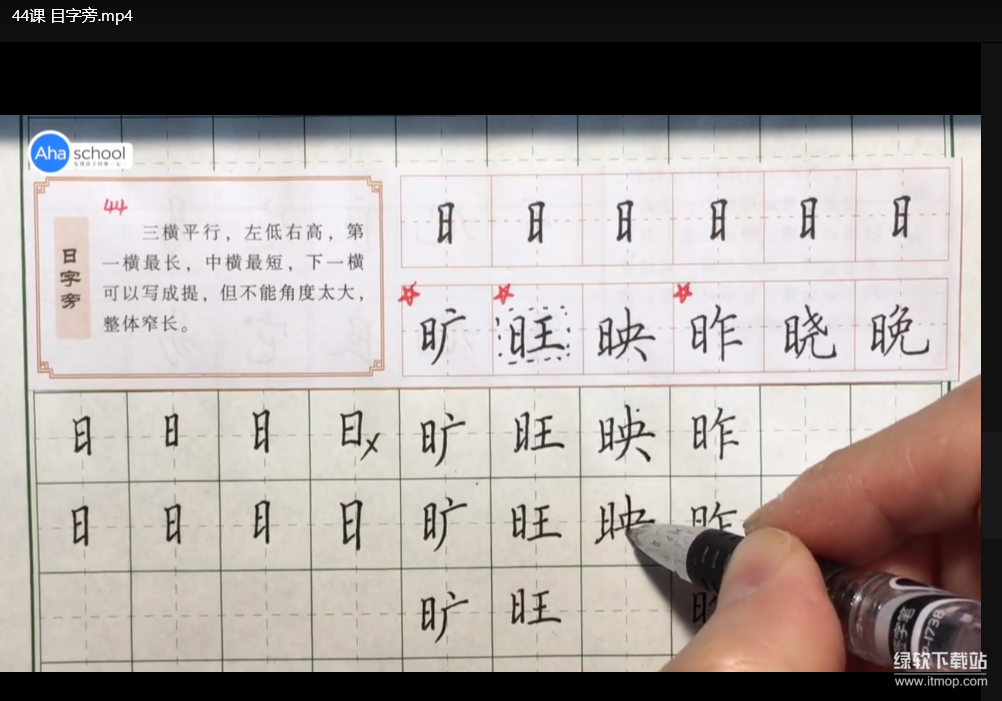 44课 目字旁.mp4
Aha school
44
日字旁
三横平行，左低右高，第
一横最长，中横最短，下一横
可以写成提，但不能角度太大，
整体窄长。
日 日 日 日 日 日
旷 旺 映 昨 晓 晚
日 日 日 日x 旷 旺 映 昨
日 日 日 日 旷 旺 映 昨
旷 旺
绿软下载站
www.itmop.com